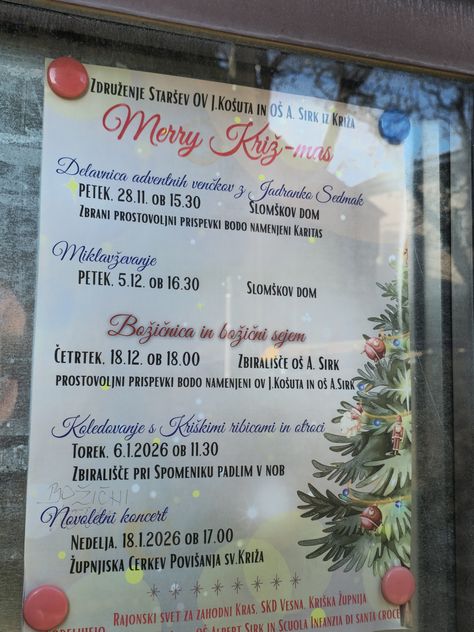 Združenje Staršev OV J.Košuta in OŠ A. Sirk iz Križa
Merry Križ-mas
Delavnica adventnih venčkov z Jadranko Sedmak
PETEK. 28.11. ob 15.30 Slomškov dom
Zbrani prostovoljni prispevki bodo namenjeni Karitas
Miklavževanje
PETEK. 5.12. ob 16.30 Slomškov dom
Božičnica in božični sejem
Četrtek. 18.12. ob 18.00 Zbirališče oš A. Sirk
prostovoljni prispevki bodo namenjeni ov J.Košuta in oš A.Sirk
Koledovanje s Kriškimi ribicami in otroci
Torek. 6.1.2026 ob 11.30
Zbirališče pri Spomeniku padlim v nob
BOŽIČNI
Novoletni koncert
Nedelja. 18.1.2026 ob 17.00
Župnijska Cerkev Povišanja sv.Križa
Rajonski svet za zahodni Kras, SKD Vesna, Kriška Župnija
OŠ Albert Sirk in Scuola Infanzia di santa croce